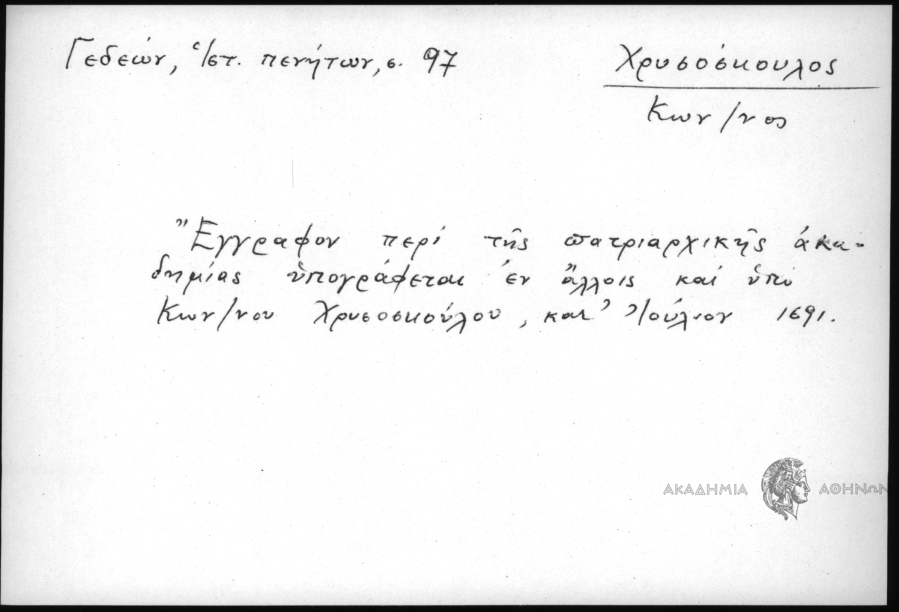 Γεδεών, Ἱστ. πενήτων, σ. 97
Χρυσόσκουλος
Κων/νος
Ἔγγραφον περί τῆς πατριαρχικῆς ἀκα-
δημίας ὑπογράφεται ἐν ἄλλοις καί ὑπό
Κων/νου Χρυσοσκούλου, κατ' Ἰούλιον 1691.
ΑΚΑΔΗΜΙΑ ΑΘΗΝΩΝ